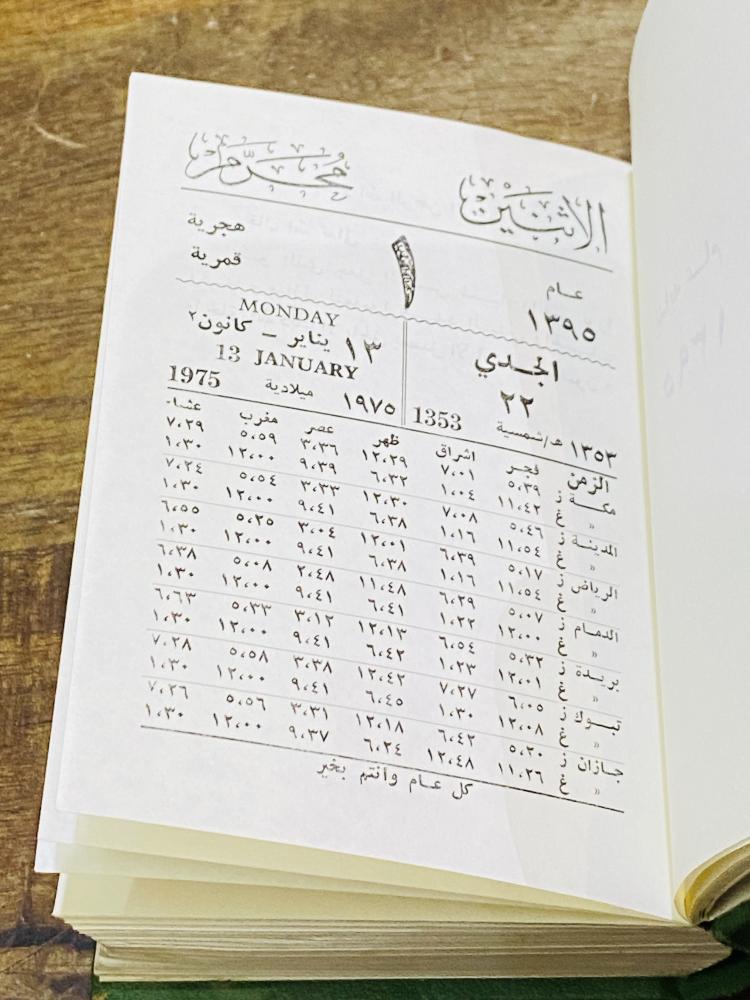 الاثنين مُحَرَّم
عام ١ هجرية
١٣٩٥ قمرية
الجدي
٢٢
١٣٥٣ هـ/شمسية 1353
MONDAY
١٣ يناير – كانون٢
13 JANUARY
١٩٧٥ ميلادية 1975
الزمن فجر اشراق ظهر عصر مغرب عشاء
مكة ز ٥،٣٩ ٧،٠١ ١٢،٢٩ ٣،٣٦ ٥،٥٩ ٧،٢٩
» غ ١١،٤٢ ١،٠٤ ٦،٣٢ ٩،٣٩ ١٢،٠٠ ١،٣٠
المدينة ز ٥،٤٦ ٧،٠٨ ١٢،٣٠ ٣،٣٣ ٥،٥٤ ٧،٢٤
» غ ١١،٥٤ ١،١٦ ٦،٣٨ ٩،٤١ ١٢،٠٠ ١،٣٠
الرياض ز ٥،١٧ ٦،٣٩ ١٢،٠١ ٣،٠٤ ٥،٢٥ ٦،٥٥
» غ ١١،٥٤ ١،١٦ ٦،٣٨ ٩،٤١ ١٢،٠٠ ١،٣٠
الدمام ز ٥،٠٧ ٦،٢٩ ١١،٤٨ ٢،٤٨ ٥،٠٨ ٦،٣٨
» غ ١٢،٠٠ ١،٢٢ ٦،٤١ ٩،٤١ ١٢،٠٠ ١،٣٠
بريدة ز ٥،٣٢ ٦،٥٤ ١٢،١٣ ٣،١٢ ٥،٣٣ ٦،٦٣
» غ ١٢،٠١ ١،٢٣ ٦،٤٢ ٩،٤١ ١٢،٠٠ ١،٣٠
تبوك ز ٦،٠٥ ٧،٢٧ ١٢،٤٢ ٣،٣٨ ٥،٥٨ ٧،٢٨
» غ ١٢،٠٨ ١،٣٠ ٦،٤٥ ٩،٤١ ١٢،٠٠ ١،٣٠
جازان ز ٥،٢٠ ٦،٤٢ ١٢،١٨ ٣،٣١ ٥،٥٦ ٧،٢٦
» غ ١١،٢٦ ١٢،٤٨ ٦،٢٤ ٩،٣٧ ١٢،٠٠ ١،٣٠
كل عام وأنتم بخير